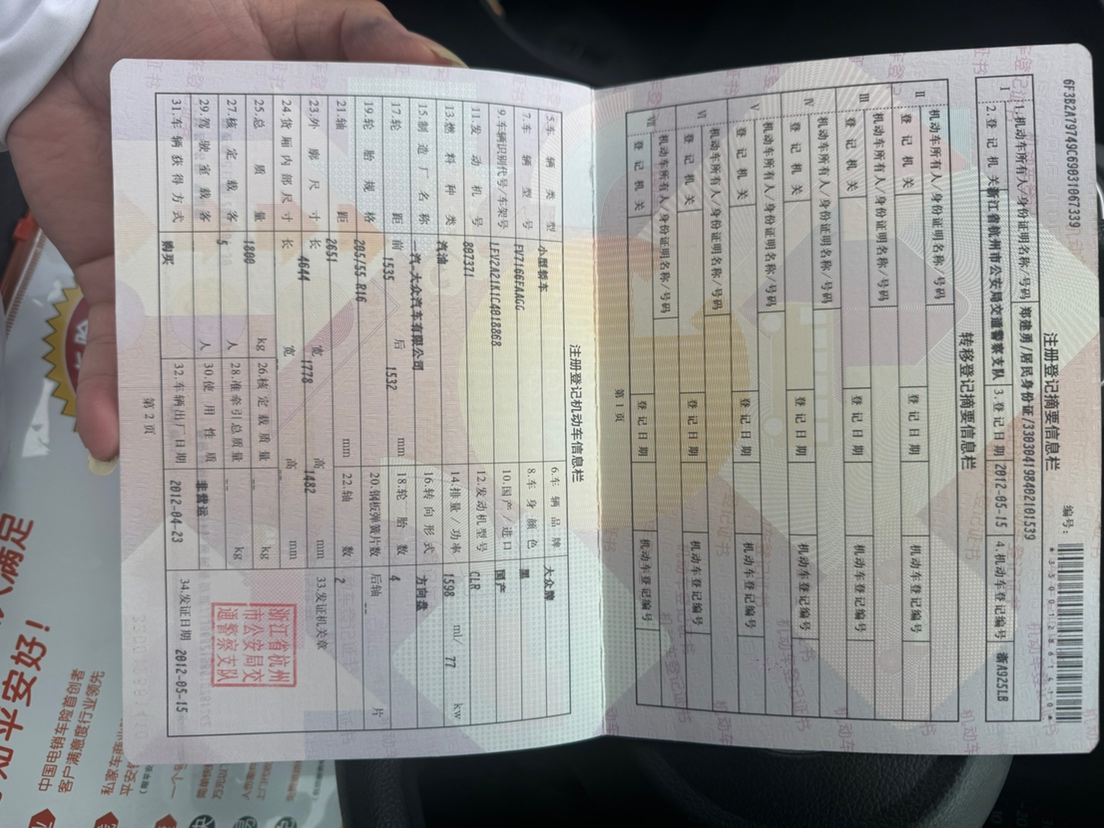 6F3B2A79749C69031067339
注册登记摘要信息栏
编号：
I
1.机动车所有人/身份证明名称/号码 郑建勇/居民身份证/330304198402101539
2.登记机关 浙江省杭州市公安局交通警察支队 3.登记日期 2012-05-15 4.机动车登记编号 浙A925LB
转移登记摘要信息栏
II 机动车所有人/身份证明名称/号码
登记机关 登记日期 机动车登记编号
III 机动车所有人/身份证明名称/号码
登记机关 登记日期 机动车登记编号
IV 机动车所有人/身份证明名称/号码
登记机关 登记日期 机动车登记编号
V 机动车所有人/身份证明名称/号码
登记机关 登记日期 机动车登记编号
VI 机动车所有人/身份证明名称/号码
登记机关 登记日期 机动车登记编号
VII 机动车所有人/身份证明名称/号码
登记机关 登记日期 机动车登记编号
第 1 页
注册登记机动车信息栏
5.车辆类型 小型轿车 6.车辆品牌 大众牌
7.车辆型号 FV7166FAAGG 8.车身颜色 黑
9.车辆识别代号/车架号 LFV2A21K1C4018868 10.国产/进口 国产
11.发动机号 807371 12.发动机型号 CLR
13.燃料种类 汽油 14.排量/功率 1598 ml/ 77 kw
15.制造厂名称 一汽-大众汽车有限公司 16.转向形式 方向盘
17.轮距 前 1535 后 1532 mm 18.轮胎数 4
19.轮胎规格 205/55 R16 20.钢板弹簧片数 后轴 -- 片
21.轴距 2651 mm 22.轴数 2
23.外廓尺寸 长 4644 宽 1778 高 1482 mm 33.发证机关章
24.货厢内部尺寸 长 宽 高 mm
25.总质量 1800 kg 26.核定载质量 -- kg
27.核定载客 5 人 28.准牵引总质量 -- kg
29.驾驶室载客 人 30.使用性质 非营运
31.车辆获得方式 购买 32.车辆出厂日期 2012-04-23 34.发证日期 2012-05-15
浙江省杭州
市公安局交
通警察支队
第 2 页
平安好！
中国电销车险首创者
客户满意度行业领先